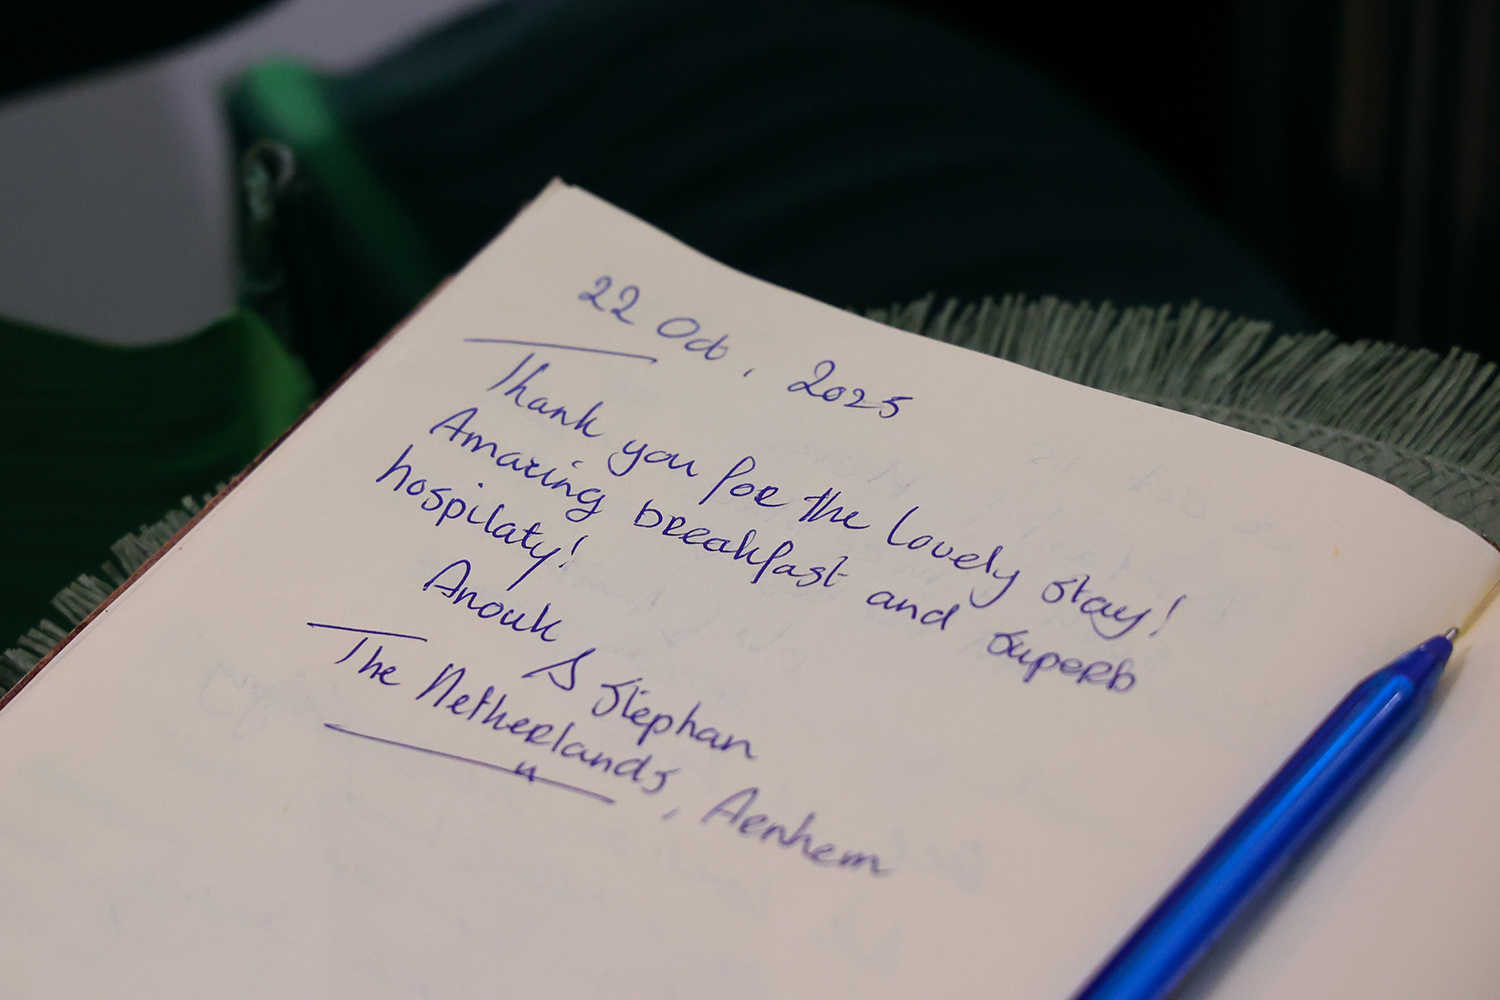 22 Oct, 2025
Thank you for the lovely stay!
Amazing breakfast and superb
hospilaty!
Anouk & Stephan
The Netherlands, Arnhem